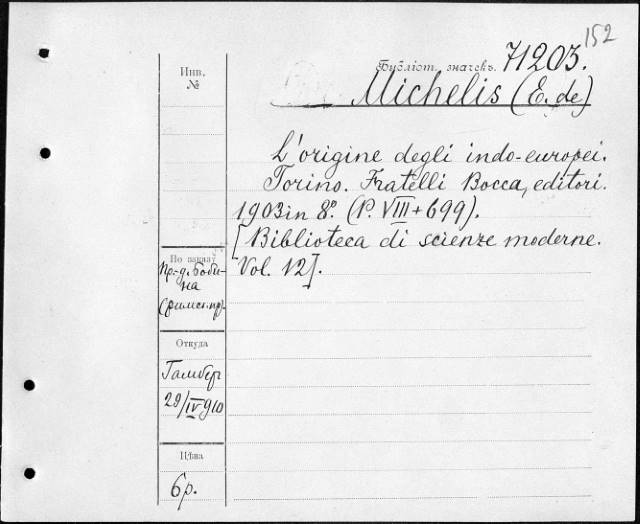 152
Инв. №
Библіот. значекъ. 71203.
Michelis (E. de)
L'origine degli indo-europei.
Torino. Fratelli Bocca, editori.
1903 in 8º. (P. VIII + 699).
[Biblioteca di scienze moderne.
Vol. 12].
По заказу
Пр-д. Боби-
на
(римск. пр.
Откуда
Гамбер
29/IV 910
Цѣна
6 р.